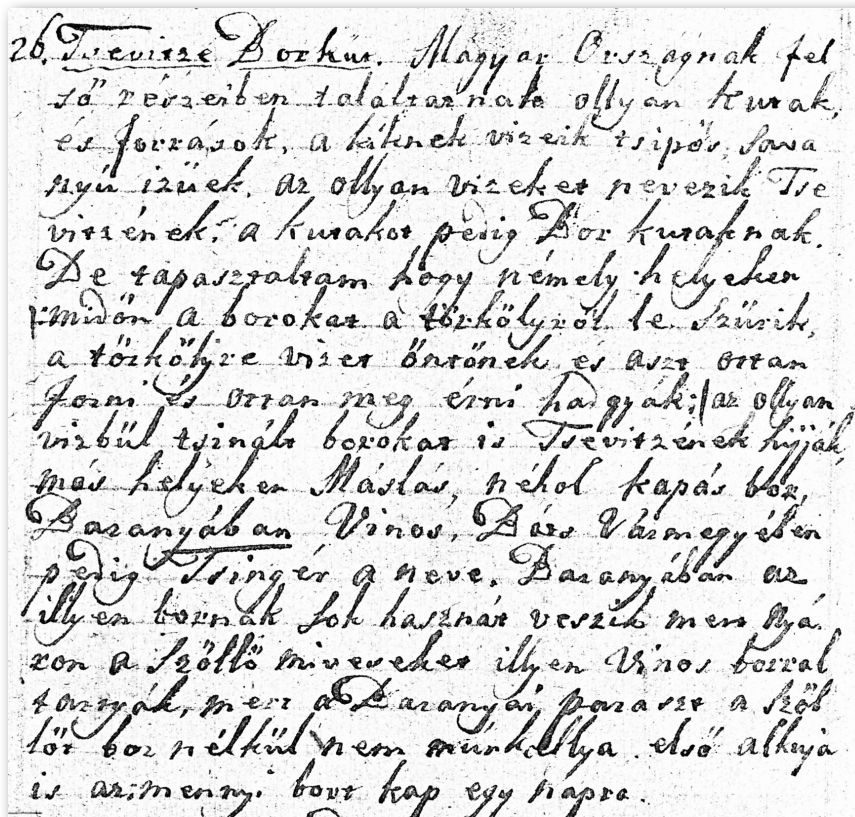 26. Tsevitze Borkút. Magyar Országnak fel
ső részeiben találtatnak ollyan kutak,
és források, a kiknek vizeik tsipős, sava
nyú izüek, az ollyan vizeket nevezik Tse
vitzének, a kutakot pedig Bor kutaknak.
De tapasztaltam hogy némely helyeken
midőn a borokat a törkölyről le szűrik,
a törkölyre vizet öntőnek és aszt ottan
forni és ottan meg érni hadgyák; az ollyan
vizbül tsinált borokat is Tsevitzének hijják,
más helyeken Máslás, néhol kapás bor,
Baranyában Vinos, Bárs Vármegyében
pedig Tsingér a neve. Baranyában az
illyen bornak sok hasznát veszik mert nyá
ron a szőllő miveseket illyen Vinos borral
tartyák, mert a Baranyai paraszt a szől
lőt bor nélkül nem munkállya első alkuja
is az: mennyi bort kap egy napra.